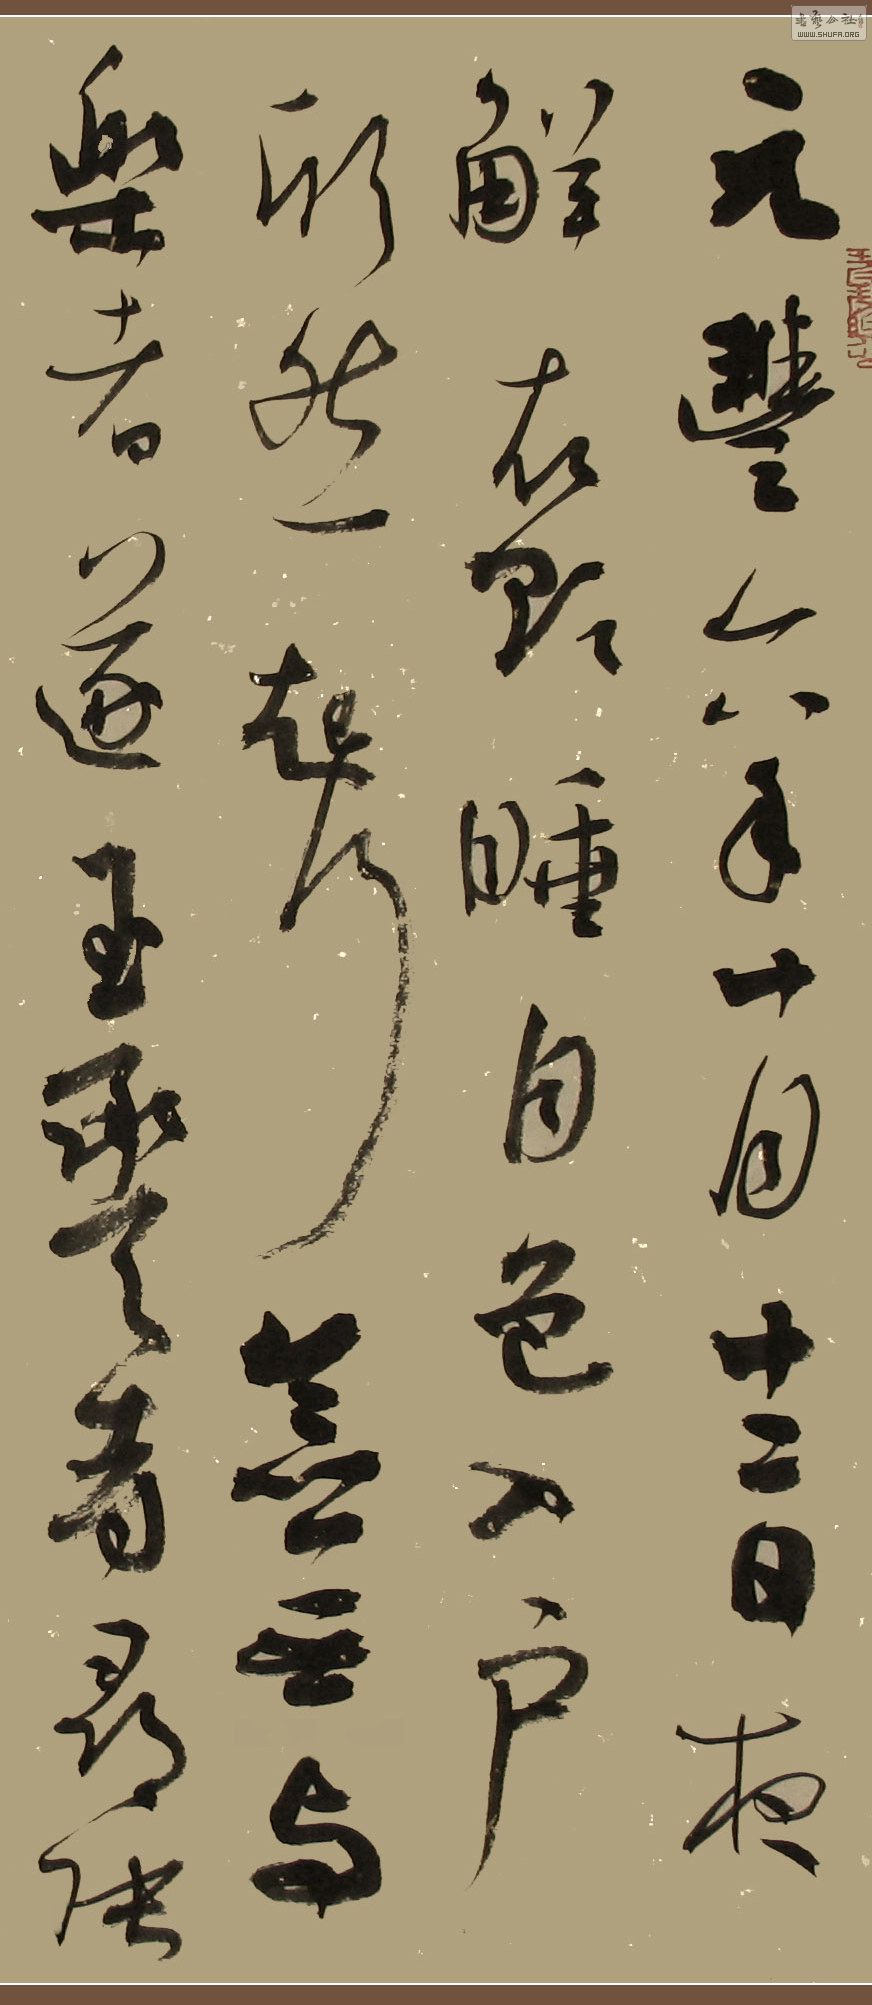 元豐六年十月十二日夜
解衣欲睡月色入户
欣然起行念無与
樂者遂至承天寺尋張
書藝公社
WWW.SHUFA.ORG